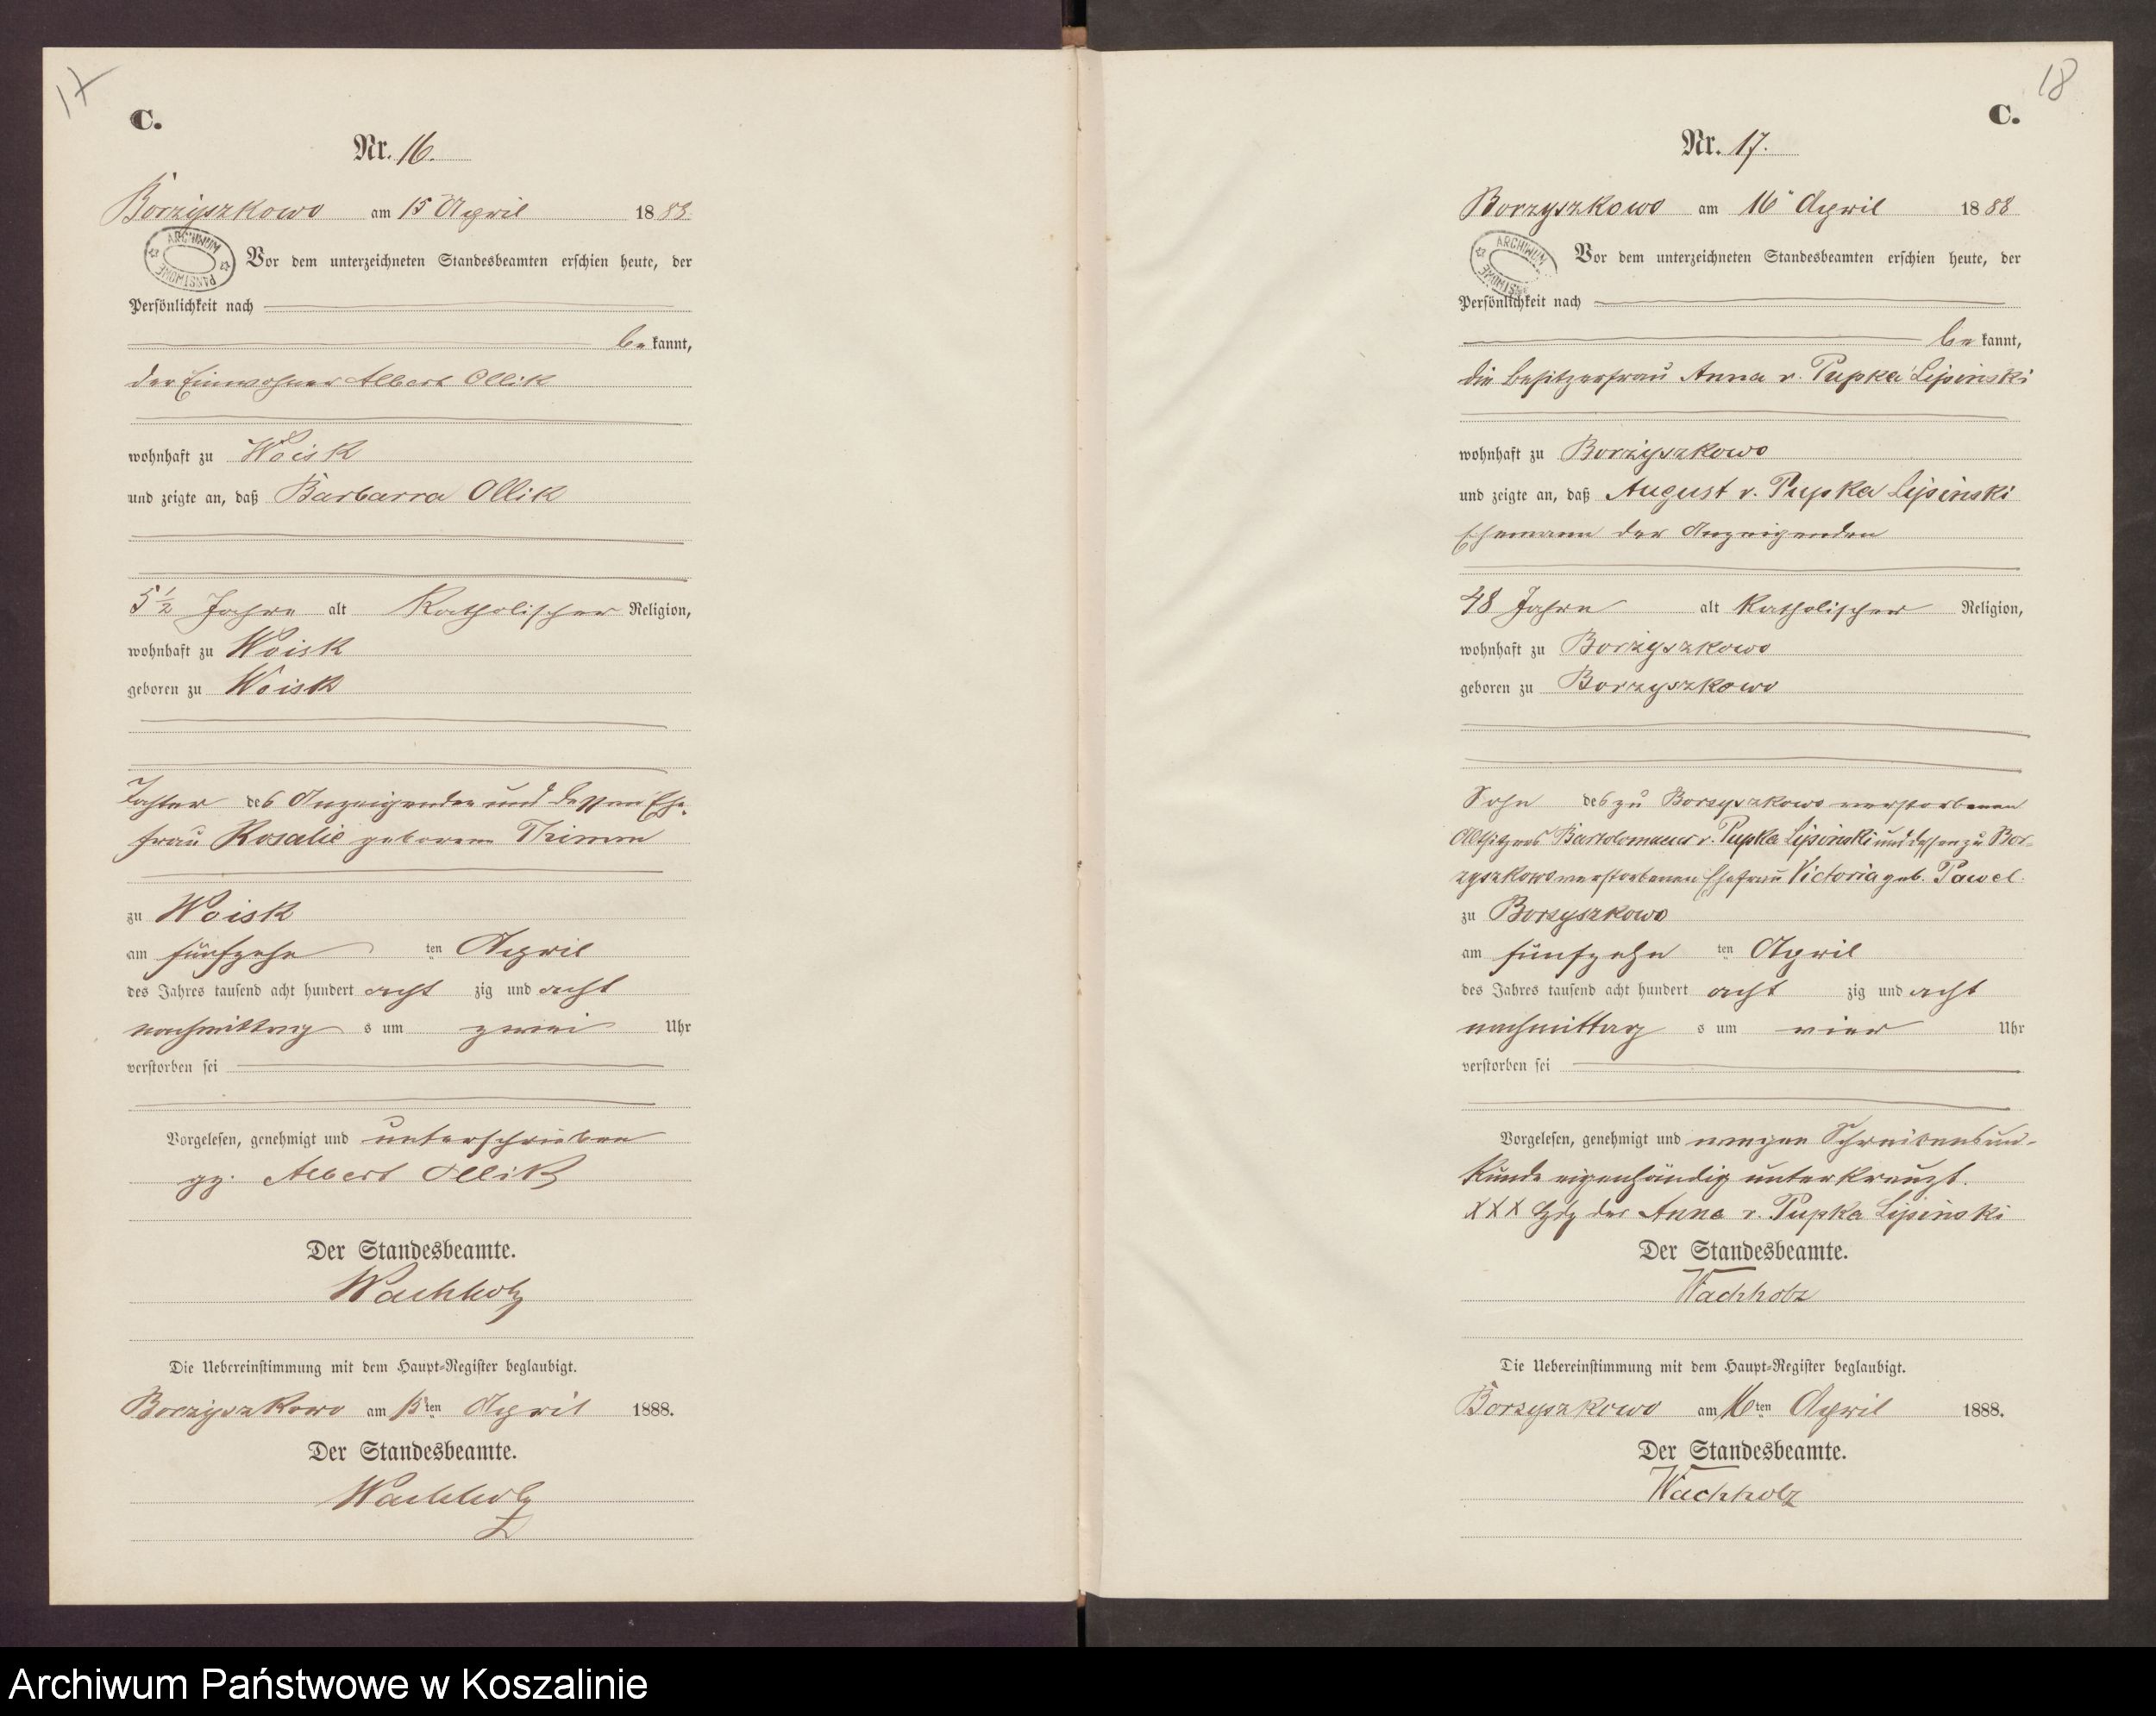 17
C.
Nr. 16.
Borzyszkowo am 15 April 1888.
ARCHIWUM PAŃSTWOWE
Vor dem unterzeichneten Standesbeamten erschien heute, der
Persönlichkeit nach
be kannt,
der Einwohner Albert Ollik
wohnhaft zu Woisk
und zeigte an, daß Barbarra Ollik
5 1/2 Jahre alt Katholischer Religion,
wohnhaft zu Woisk
geboren zu Woisk
Tochter des Anzeigenden und dessen Ehe-
frau Rosalie geborene Thimm
zu Woisk
am fünfzehn ten April
des Jahres tausend acht hundert acht zig und acht
nachmittag s um zwei Uhr
verstorben sei
Vorgelesen, genehmigt und unterschrieben
gz. Albert Ollik
Der Standesbeamte.
Wachholz
Die Uebereinstimmung mit dem Haupt-Register beglaubigt.
Borzyszkowo am 15ten April 1888.
Der Standesbeamte.
Wachholz
18
C.
Nr. 17.
Borzyszkowo am 16 April 1888
ARCHIWUM
Vor dem unterzeichneten Standesbeamten erschien heute, der
Persönlichkeit nach
be kannt,
die Besitzerfrau Anna v. Pupka Lipinski
wohnhaft zu Borzyszkowo
und zeigte an, daß August v. Pupka Lipinski
Ehemann der Anzeigenden
48 Jahre alt Katholischer Religion,
wohnhaft zu Borzyszkowo
geboren zu Borzyszkowo
Sohn des zu Borzyszkowo verstorbenen
Altsitzers Bartolomaeus v. Pupka Lipinski und dessen zu Bor-
zyszkowo verstorbenen Ehefrau Victoria geb. Pawel.
zu Borzyszkowo
am fünfzehn ten April
des Jahres tausend acht hundert acht zig und acht
nachmittag s um vier Uhr
verstorben sei
Vorgelesen, genehmigt und wegen Schreibensun-
kunde eigenhändig unterkreuzt.
XXX Hdz der Anna v. Pupka Lipinski
Der Standesbeamte.
Wachholz
Die Uebereinstimmung mit dem Haupt-Register beglaubigt.
Borzyszkowo am 16ten April 1888.
Der Standesbeamte.
Wachholz
Archiwum Państwowe w Koszalinie